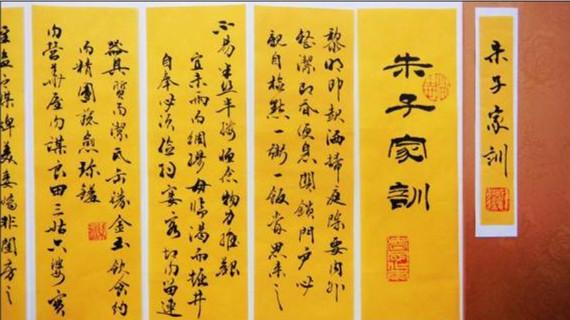 朱子家訓
朱子家訓
黎明即起洒掃庭除要内外
整潔即昏便息關鎖門户必
親自檢點一粥一飯當思來之
不易半絲半縷恒念物力維艱
宜未雨而綢繆毋臨渴而掘井
自奉必須儉約宴客切勿留連
器具質而潔瓦缶勝金玉飲食約
而精園蔬愈珍饈
勿營華屋勿謀良田三姑六婆實
之媒婢美妾嬌非閨房之